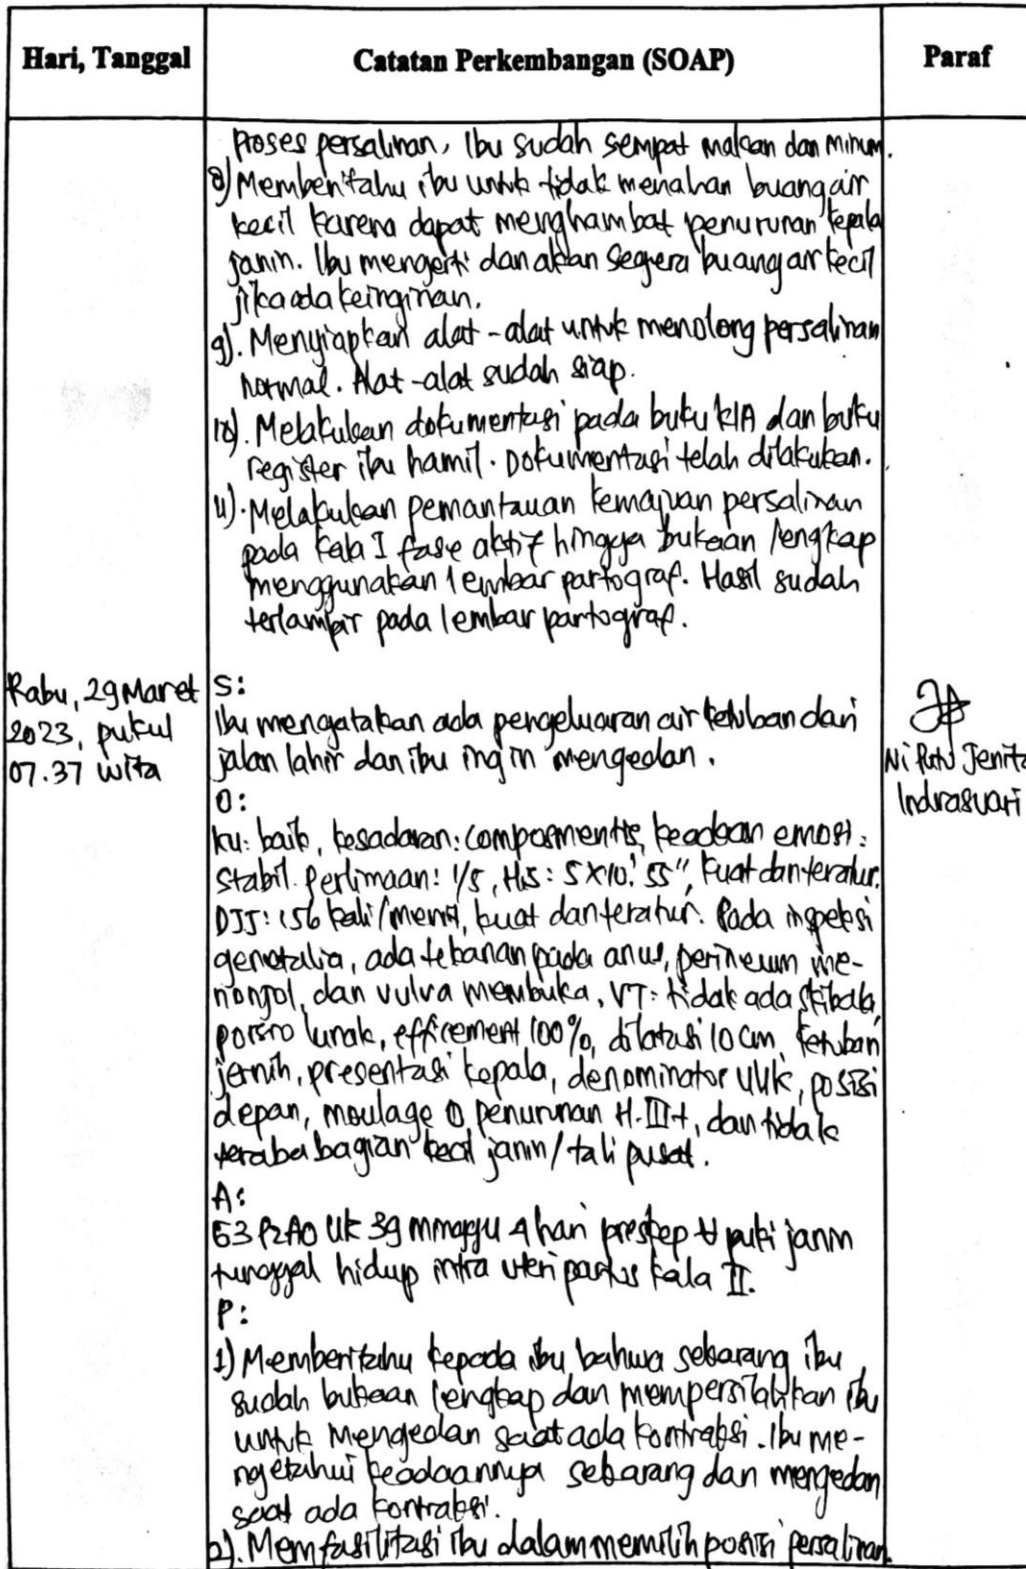 Hari, Tanggal
Catatan Perkembangan (SOAP)
Paraf
Proses persalinan, Ibu sudah sempat makan dan minum.
8) Memberitahu ibu untuk tidak menahan buang air
kecil karena dapat menghambat penurunan kepala
janin. Ibu mengerti dan akan segera buang air kecil
jika ada keinginan.
9). Menyiapkan alat-alat untuk menolong persalinan
normal. Alat-alat sudah siap.
10). Melakukan dokumentasi pada buku KIA dan buku
register ibu hamil. Dokumentasi telah dilakukan.
11). Melakukan pemantauan kemajuan persalinan
pada kala I fase aktif hingga bukaan lengkap
menggunakan lembar partograf. Hasil sudah
terlampir pada lembar partograf.
Rabu, 29 Maret
2023, pukul
07.37 wita
S:
Ibu mengatakan ada pengeluaran air ketuban dari
jalan lahir dan ibu ingin mengedan.
O:
KU: baik, kesadaran: composmentis, keadaan emosi:
stabil. Perlimaan: 1/5, His: 5x10' 55", kuat dan teratur.
DJJ: 156 kali/menit, kuat dan teratur. Pada inspeksi
genetalia, ada tekanan pada anus, perineum me-
nonjol, dan vulva membuka, VT: tidak ada skibala,
porsio lunak, efficement 100%, dilatasi 10 cm, ketuban
jernih, presentasi kepala, denominator UUK, posisi
depan, moulage 0, penurunan H.III+, dan tidak
teraba bagian kecil janin/tali pusat.
A:
G3 P2A0 UK 39 minggu 4 hari preskep U puki janin
tunggal hidup intra uteri partus kala II.
P:
1) Memberitahu kepada ibu bahwa sekarang ibu
sudah bukaan lengkap dan mempersilahkan ibu
untuk mengedan saat ada kontraksi. Ibu me-
ngetahui keadaannya sekarang dan mengedan
saat ada kontraksi.
2). Memfasilitasi ibu dalam memilih posisi persalinan.
Ni Putu Jenita
Indraswari